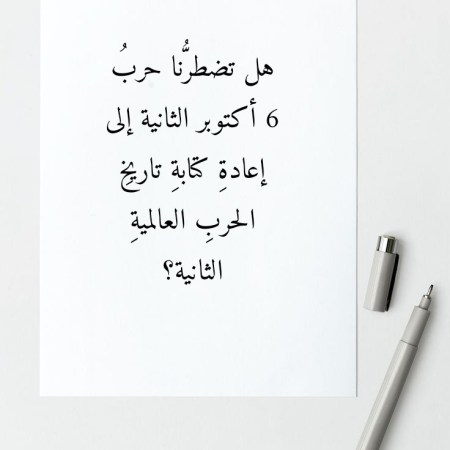 هل تضطرُّنا حربُ
6 أكتوبر الثانية إلى
إعادةِ كتابةِ تاريخِ
الحربِ العالميةِ
الثانية؟